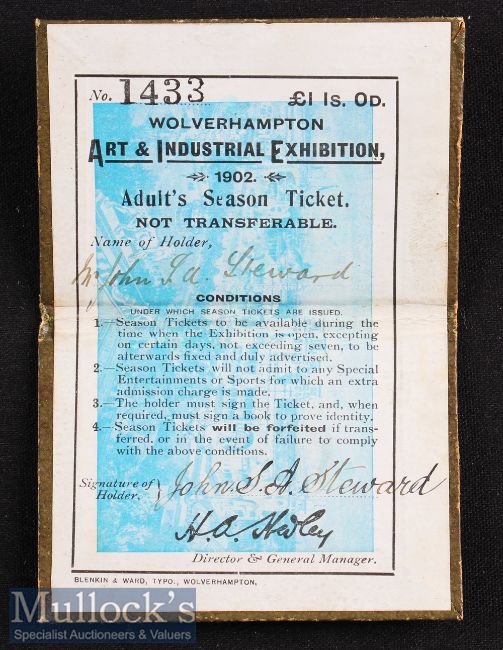 No. 1433 £1 1s. 0D.
WOLVERHAMPTON
ART & INDUSTRIAL EXHIBITION,
1902.
Adult's Season Ticket.
NOT TRANSFERABLE.
Name of Holder,
Mr John Steward
CONDITIONS
UNDER WHICH SEASON TICKETS ARE ISSUED.
1.—Season Tickets to be available during the
time when the Exhibition is open, excepting
on certain days, not exceeding seven, to be
afterwards fixed and duly advertised.
2.—Season Tickets will not admit to any Special
Entertainments or Sports for which an extra
admission charge is made.
3.—The holder must sign the Ticket, and, when
required, must sign a book to prove identity.
4.—Season Tickets will be forfeited if trans-
ferred, or in the event of failure to comply
with the above conditions.
Signature of
Holder. } John S. A. Steward
H A Hedley
Director & General Manager.
BLENKIN & WARD, TYPO., WOLVERHAMPTON.
Mullock's
Specialist Auctioneers & Valuers